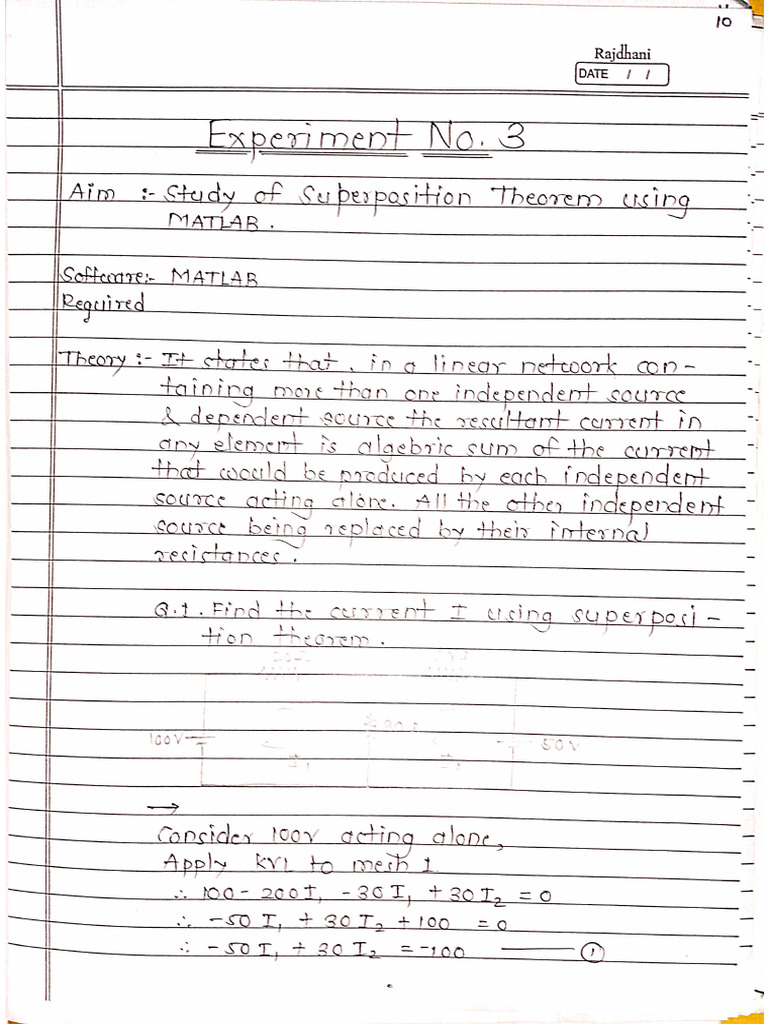 10
Rajdhani
DATE / /
Experiment No. 3
Aim :- Study of Superposition Theorem using
MATLAB.
Software:- MATLAB
Required
Theory :- It states that, in a linear network con-
taining more than one independent source
& dependent source the resultant current in
any element is algebric sum of the current
that would be produced by each independent
source acting alone. All the other independent
source being replaced by their internal
resistances.
Q.1. Find the current I using superposi-
tion theorem.
100V
50V
I1
→
Consider 100V acting alone,
Apply KVL to mesh 1
∴ 100 - 200I1 - 30I1 + 30I2 = 0
∴ -50I1 + 30I2 + 100 = 0
∴ -50I1 + 30I2 = -100 ——— ①